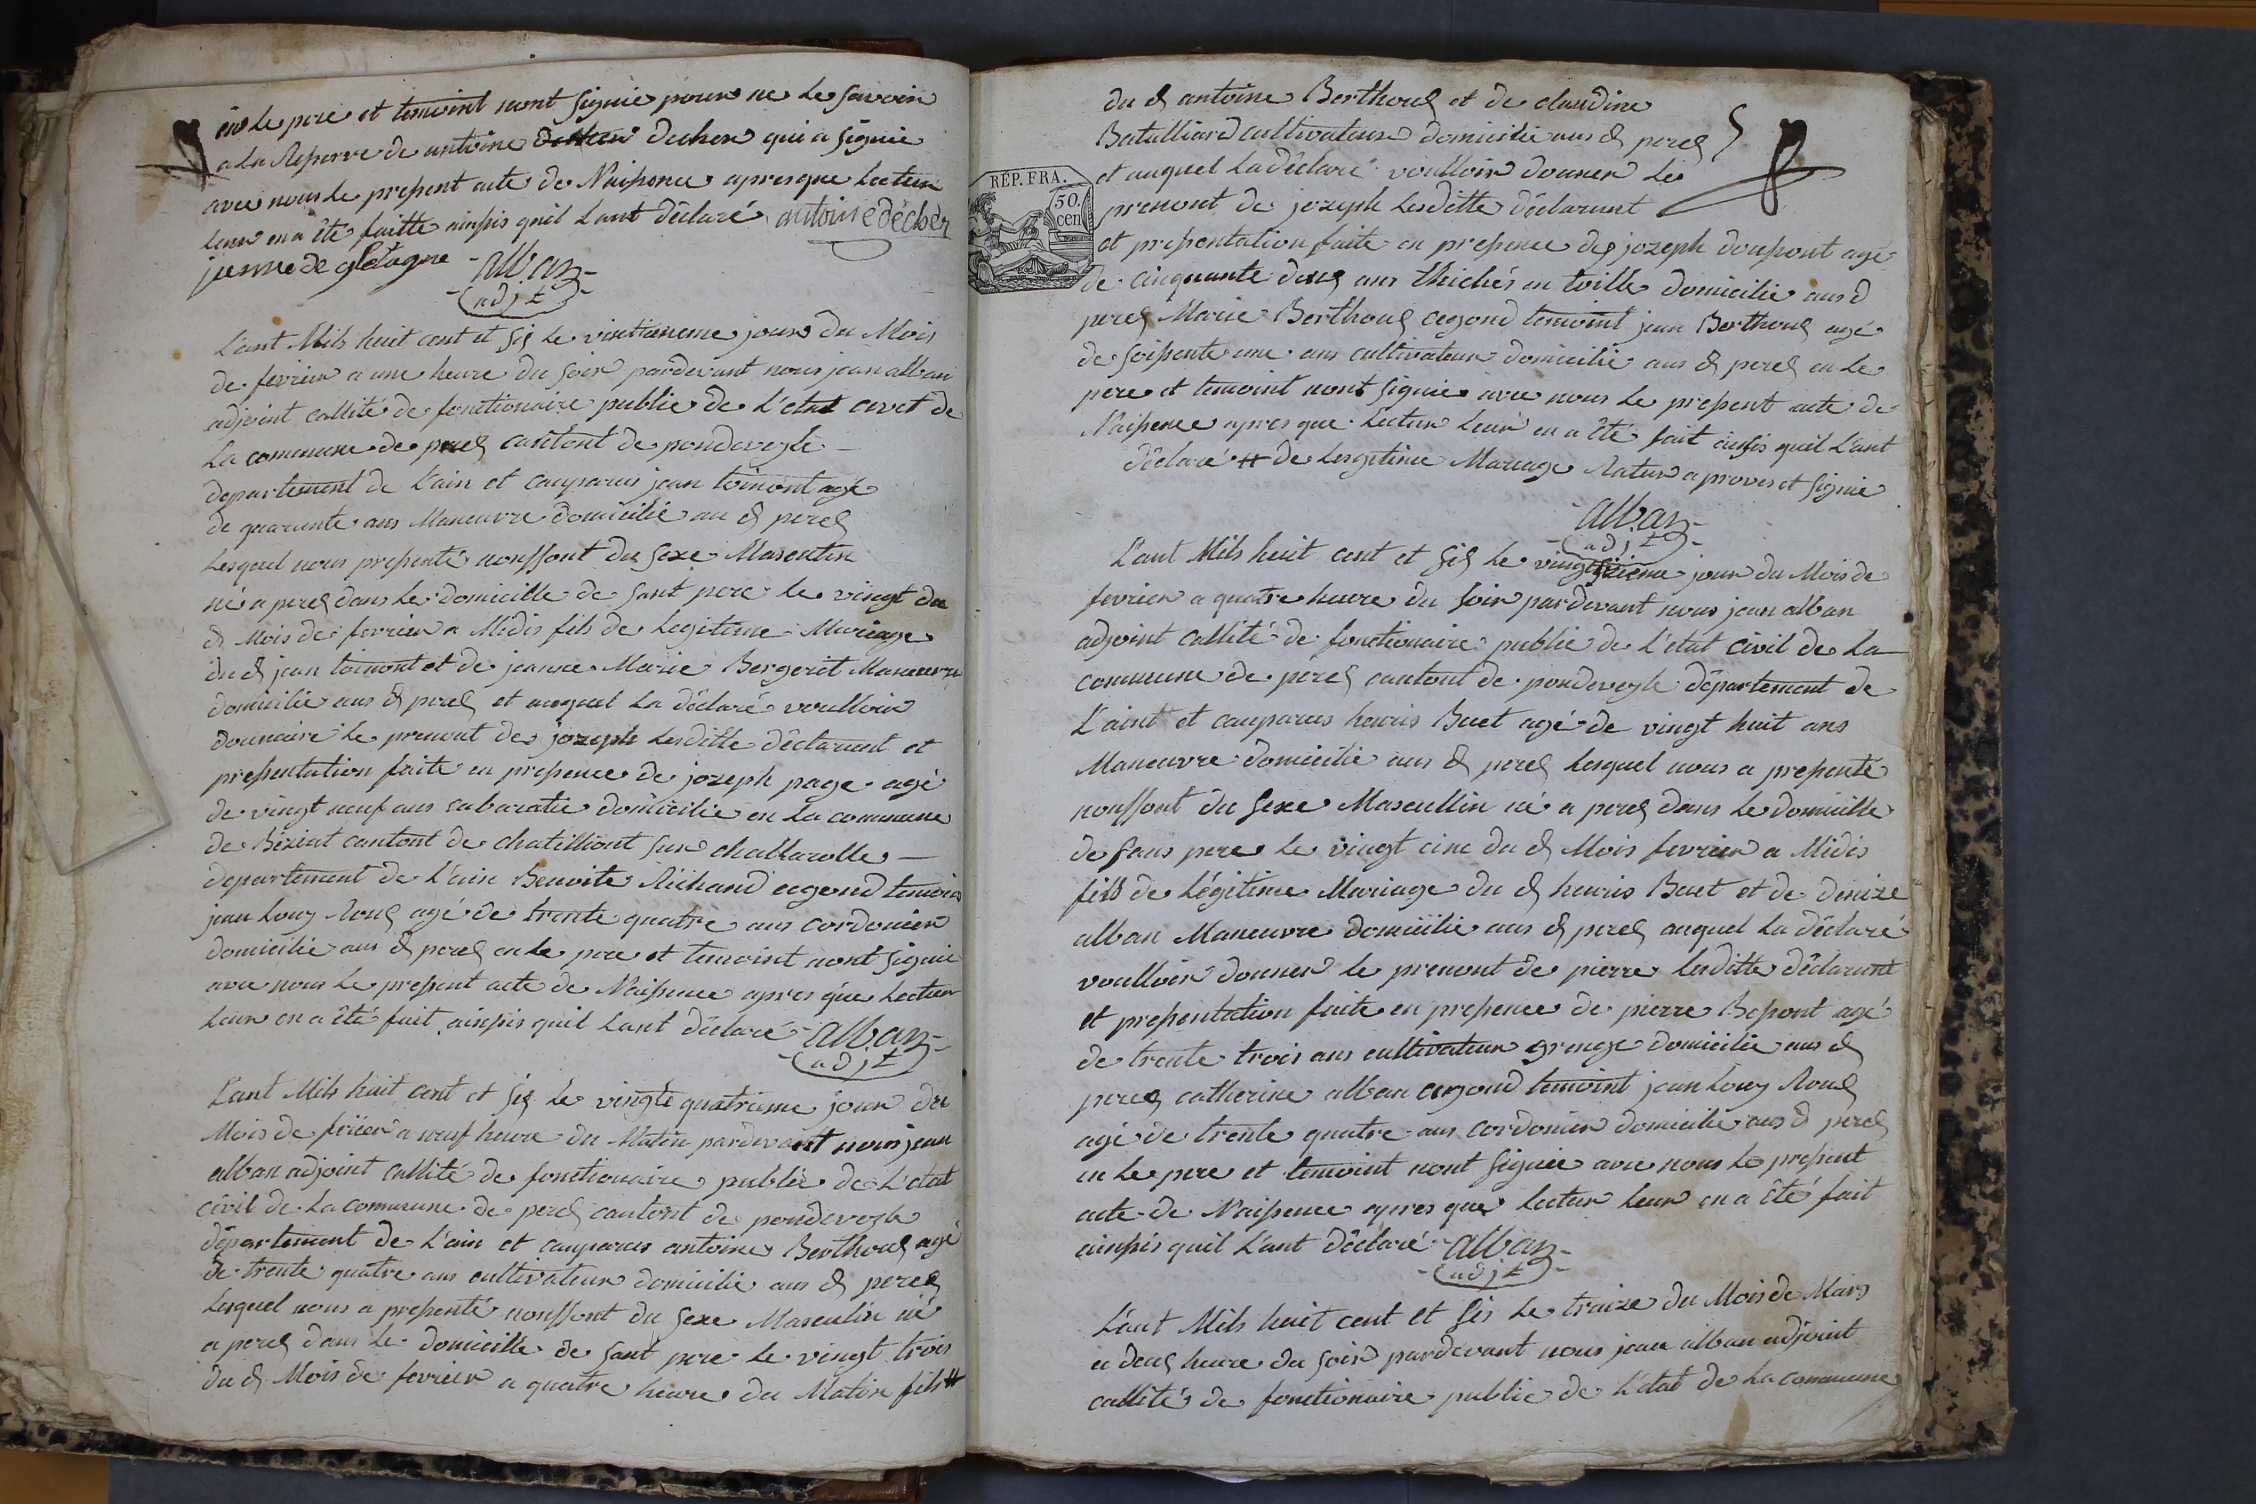 en le pere et temoint nont signié pour ne le savoir
a la Reserve de antoine decher qui a signié
avec nous le present acte de Naissence apres que lectur
leur en a été faitte ainssis quil Lant déclaré antoine décher
alban
adjt
L'ant Mils huit cent et sis le jour du Mois
de fevrier a une heure du soir pardevant nous jean alban
adjoint callité de fonctionaire public de L'etat civet de
La commune de perex cantont de pondeveyle
departement de L'ain et comparus jean toinont agé
de quarante ans Maneuvre domicilié au d perex
Lesquel nous presenté nonffont du sexe Masculin
né a perex dans le domicille de sant pere le vingt du
d Mois de fevrier a Midis fils de Legitime Mariage
du d jean toinont et de jeanne Marie Bergeret Maneuvre
domicilié aus d perex et auquel La déclaré voulloir
donnaire le prenont de jozeph Lesditte déclarant et
presentation faite en presence de jozeph page agé
de vingt neuf ans cabaratié domicilié en La commune
de Béziat cantont de chatilliont sur challarolle
departement de L'ain Benoite Richand cegond temoin
jean Louy Roux agé de trente quatre ans cordonier
domicilié aus d perex en le pere et temoint nont signié
avec nous le present acte de Naissence apres que Lectur
Leur en a été fait ainssis quil Lant déclaré alban
adjt
L'ant Mils huit cent et six le vingte quatrieme jour du
Mois de frier a neuf heure du Matin pardevant nous jean
alban adjoint callité de fonctionaire public de L'etat
civil de La commune de perex cantont de pondeveyle
département de L'ain et comparus antoine Berthoux agé
de trente quatre ans cultivateur domicilié aus d perex
Lesquel nous a presenté nonffont du sexe Masculin né
a perex dans le domicille de sant pere le vingt trois
du d Mois de fevrier a quatre heure du Matin fils #
du d antoine Berthoux et de claudine
Batalliard cultivateur domicilié aus d perex
et auquel La déclaré voulloir donner le
prenont de jozeph Lesditte déclarant
RÉP. FRA.
50.
cen
et presentation faite en presence de jozeph dousont agé
de cinquante deux ans thichés en toille domicilié aus d
perex Marie Berthoux cegond temoint jean Berthoux agé
de soissente une ans cultivateur domicilié aus d perex en le
pere et temoint nont signié avec nous le present acte de
Naissence apres que Lectur Leur en a été fait ainsis quil L'ant
déclaré # de Lesgitime Mariage Ratur aprové et signié
alban
adjt
L'ant Mils huit cent et six le jour du Mois de
fevrier a quatre heure du soir pardevant nous jean alban
adjoint callité de fonctionaire public de L'état civil de La
commune de perex cantont de pondeveyle département de
L'aint et comparus henris Buet agé de vingt huit ans
Maneuvre domicilié aus d perex Lesquel nous a presenté
nonffont du sexe Mascullin né a perex dans le domicille
de sans pere le vingt cinc du d Mois fevrier a Midis
fils de Légitime Mariage du d henris Buet et de denize
alban Maneuvre domicilié aus d perex auquel La déclaré
voulloir donner le prenont de pierre Lesditte déclarant
et presentation faite en presence de pierre Bepont agé
de trente trois ans cultivateur grenge domicilié aus d
perex catherine alban cegond temoint jean Louy Roux
agé de trente quatre ans cordonier domicilié aus d perex
en le pere et temoint nont signié avec nous le present
acte de Naissence apres que lectur leur en a été fait
ainssis quil L'ant déclaré alban
adjt
L'ant Mils huit cent et sis le traize du Mois de Mars
a deux heure du soir pardevant nous jean alban adjoint
callité de fonctionaire public de L'état de La commune